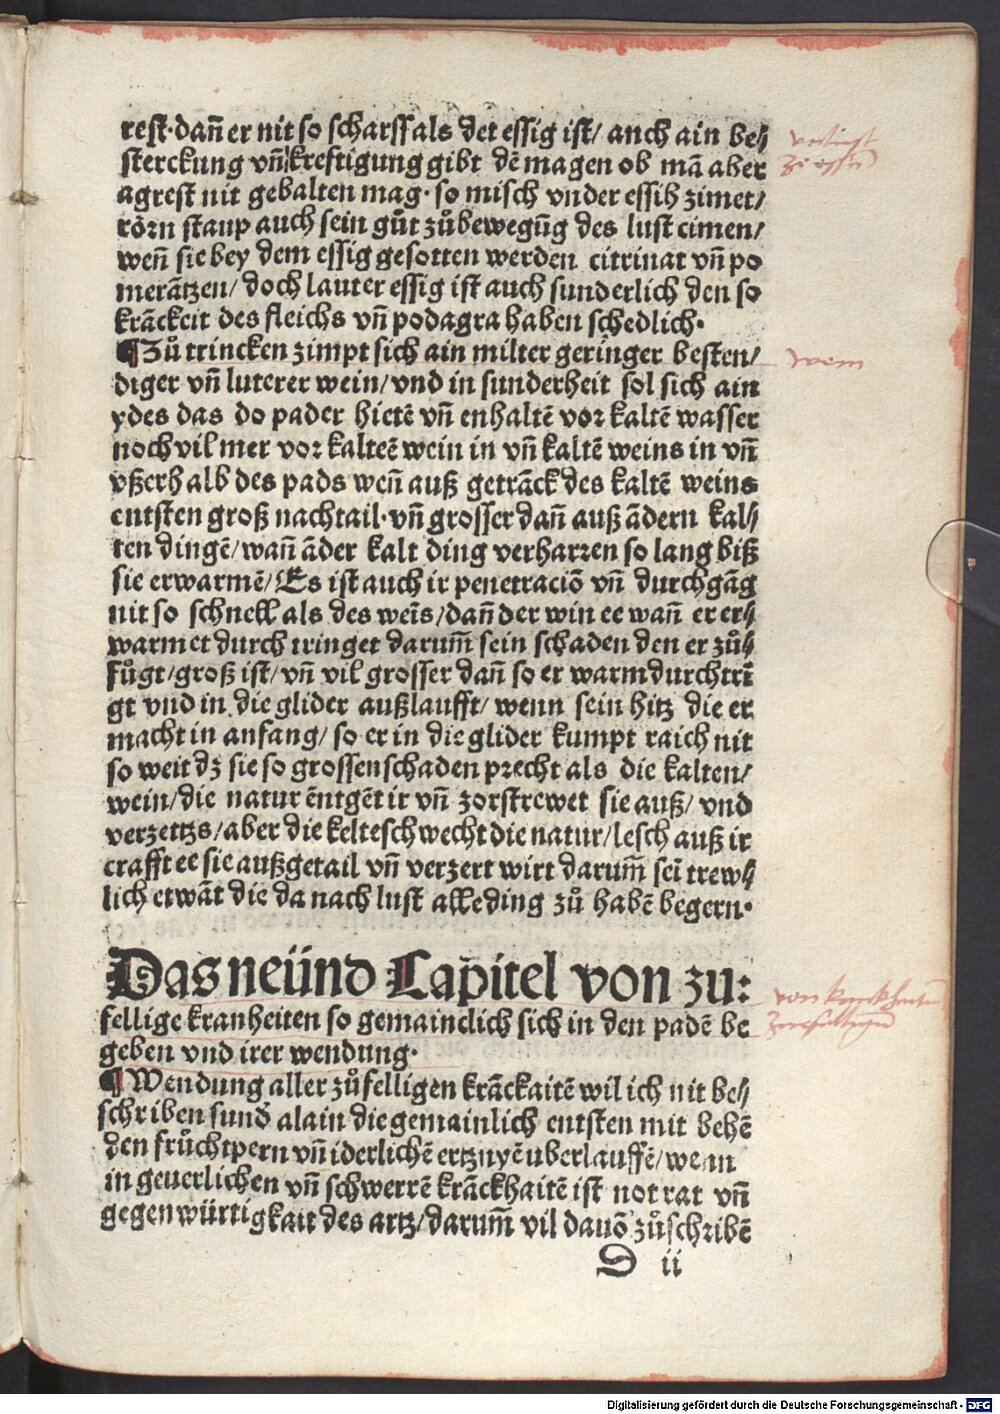 rest·dañ er nit so scharff als det essig ist/ anch ain be⸗
sterckung vñ kreftigung gibt dē magen ob mā aber
agrest nit gebalten mag· so misch vnder essih zimet/
rörn staup auch sein gůt zůbewegūg des lust cimen/
weñ sie bey dem essig gesotten werden citrinat vñ po
merātzen/ doch lauter essig ist auch sunderlich den so
krāckeit des fleichs vñ podagra haben schedlich·
¶Zů trincken zimpt sich ain milter geringer besten/
wein
diger vñ luterer wein/ vnd in sunderheit sol sich ain
ydes das do pader hietē vñ enhaltē vor kaltē wasser
noch vil mer vor kalteē wein in vñ kaltē weins in vñ
vßerhalb des pads weñ auß getrāck des kaltē weins
entsten groß nachtail·vñ grosser dañ auß ādern kal⸗
ten dingē/ wañ āder kalt ding verharren so lang biß
sie erwarmē/ Es ist auch ir penetraciō vñ durchgāg
nit so schnell als des weīs/ dañ der win ee wañ er er⸗
warmet durch tringet darum̄ sein schaden den er zů⸗
fůgt/ groß ist/ vñ vil grosser dañ so er warm durchtrī
gt vnd in die glider außlaufft/ wenn sein hitz die er
macht in anfang/ so er in die glider kumpt raich nit
so weit dz sie so grossen schaden precht als die kalten/
wein/ die natur ēntgēt ir vñ zorstrewet sie auß/ vnd
verzettzs/ aber die kelte schwecht die natur/ lesch auß ir
crafft ee sie außgetail vñ verzert wirt darum̄ seī trew⸗
lich etwāt die da nach lust alle ding zů habē begern·
Das neünd Capitel von zu:
fellige kranheiten so gemainclich sich in den padē be
geben vnd irer wendung·
¶Wendung aller zůfelligen krāckaitē wil ich nit be⸗
schriben sund̄ alain die gemainlich entsten mit behē
den frůchtpern vñ iderlichē ertznyē uberlauffē/ wenn
in geuerlichen vñ schwerrē krāckhaitē ist not rat vñ
gegenwürtigkait des artz/ darum̄ vil dauō zůschribē
D ii
Digitalisierung gefördert durch die Deutsche Forschungsgemeinschaft - DFG